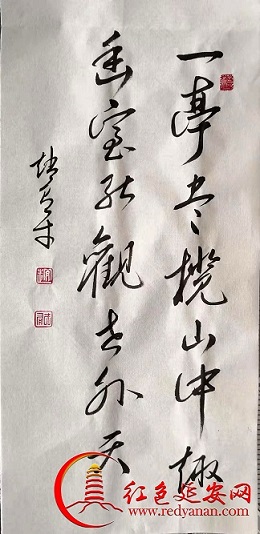 一亭尽揽山中趣
幽室能觀世外天
红色延安网
www.redyanan.com